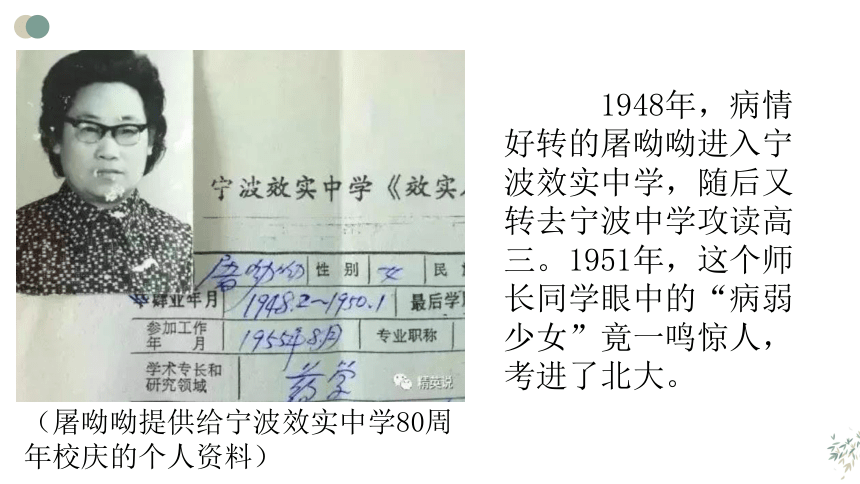 宁波效实中学《效实
屠呦呦 性 别 女 民
毕肄业年月 1948.2~1950.1 最后学
参加工作
年 月 1955年8月 专业职称
学术专长和
研究领域 药学
精英说
(屠呦呦提供给宁波效实中学80周
年校庆的个人资料)
1948年，病情
好转的屠呦呦进入宁
波效实中学，随后又
转去宁波中学攻读高
三。1951年，这个师
长同学眼中的“病弱
少女”竟一鸣惊人，
考进了北大。